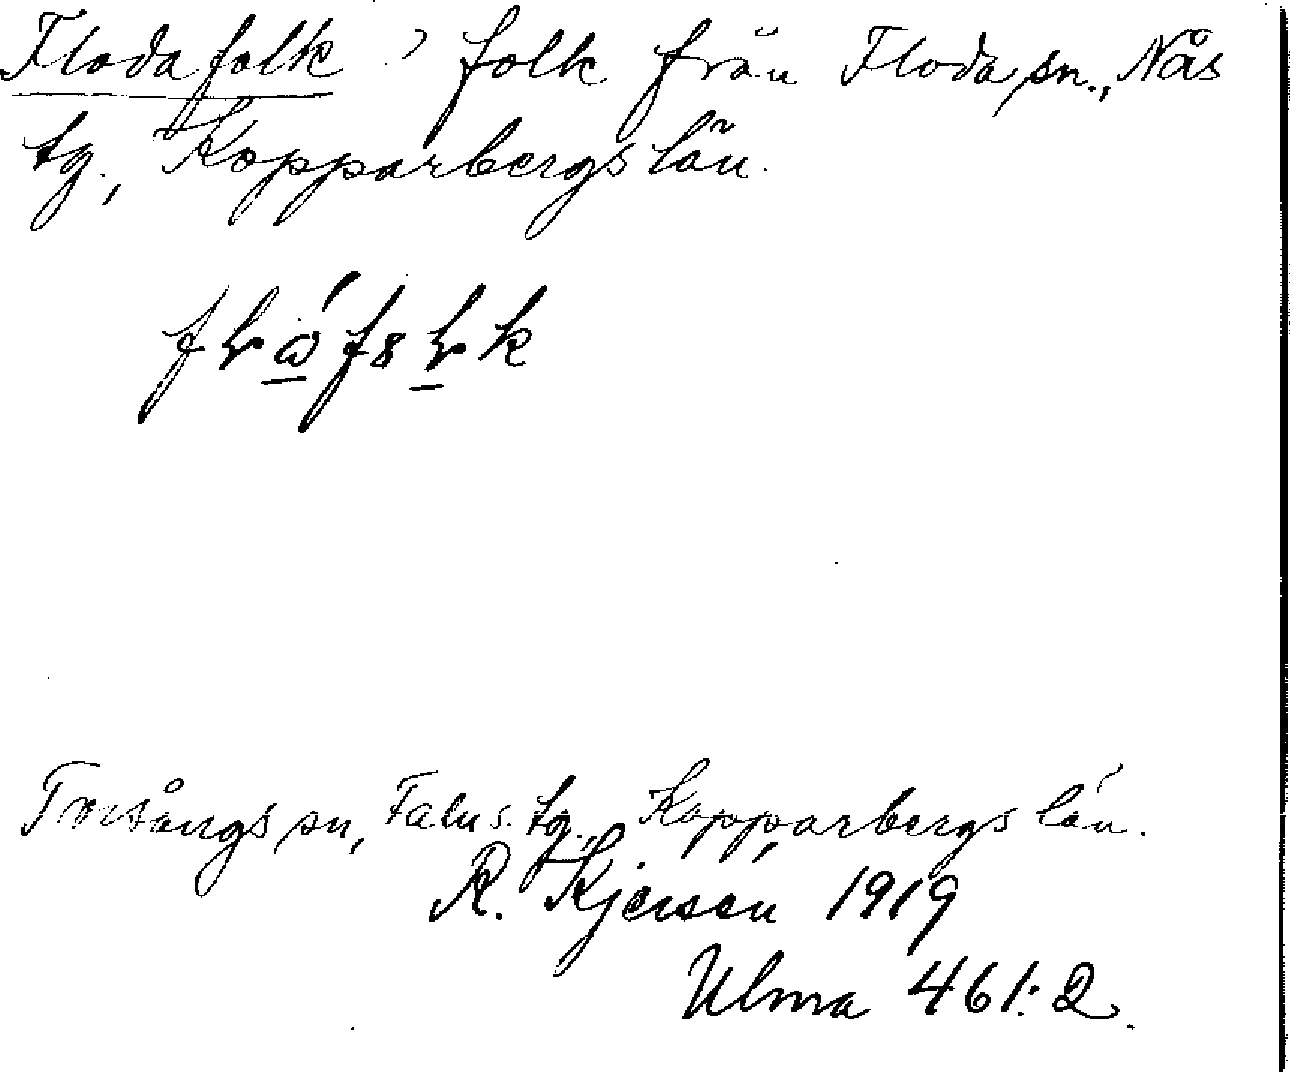 Flodafolk, folk från Floda sn., Nås
tg., Kopparbergs län.
Torsångs sn, Falu s. tg., Kopparbergs län.
R. Kjersén 1919
Ulma 461:2.